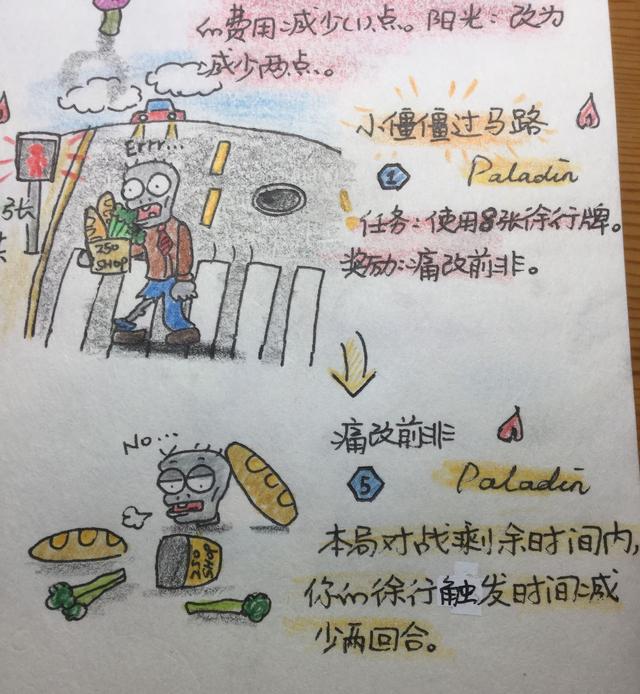 的费用减少(1)点。阳光:改为
减少两点。
小僵僵过马路
Errr...
1
Paladin
张
任务:使用8张徐行牌。
250
SHOP
奖励:痛改前非。
No...
痛改前非
5
Paladin
250
SHOP
本局对战剩余时间内,
你的徐行触发时间减
少两回合。